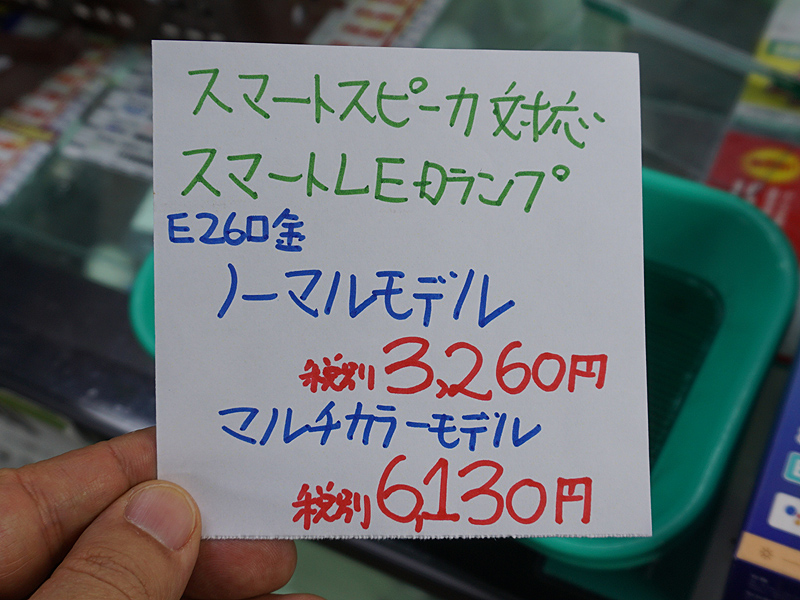 スマートスピーカ対応
スマートLEDランプ
E26口金
ノーマルモデル
税別3,260円
マルチカラーモデル
税別6,130円